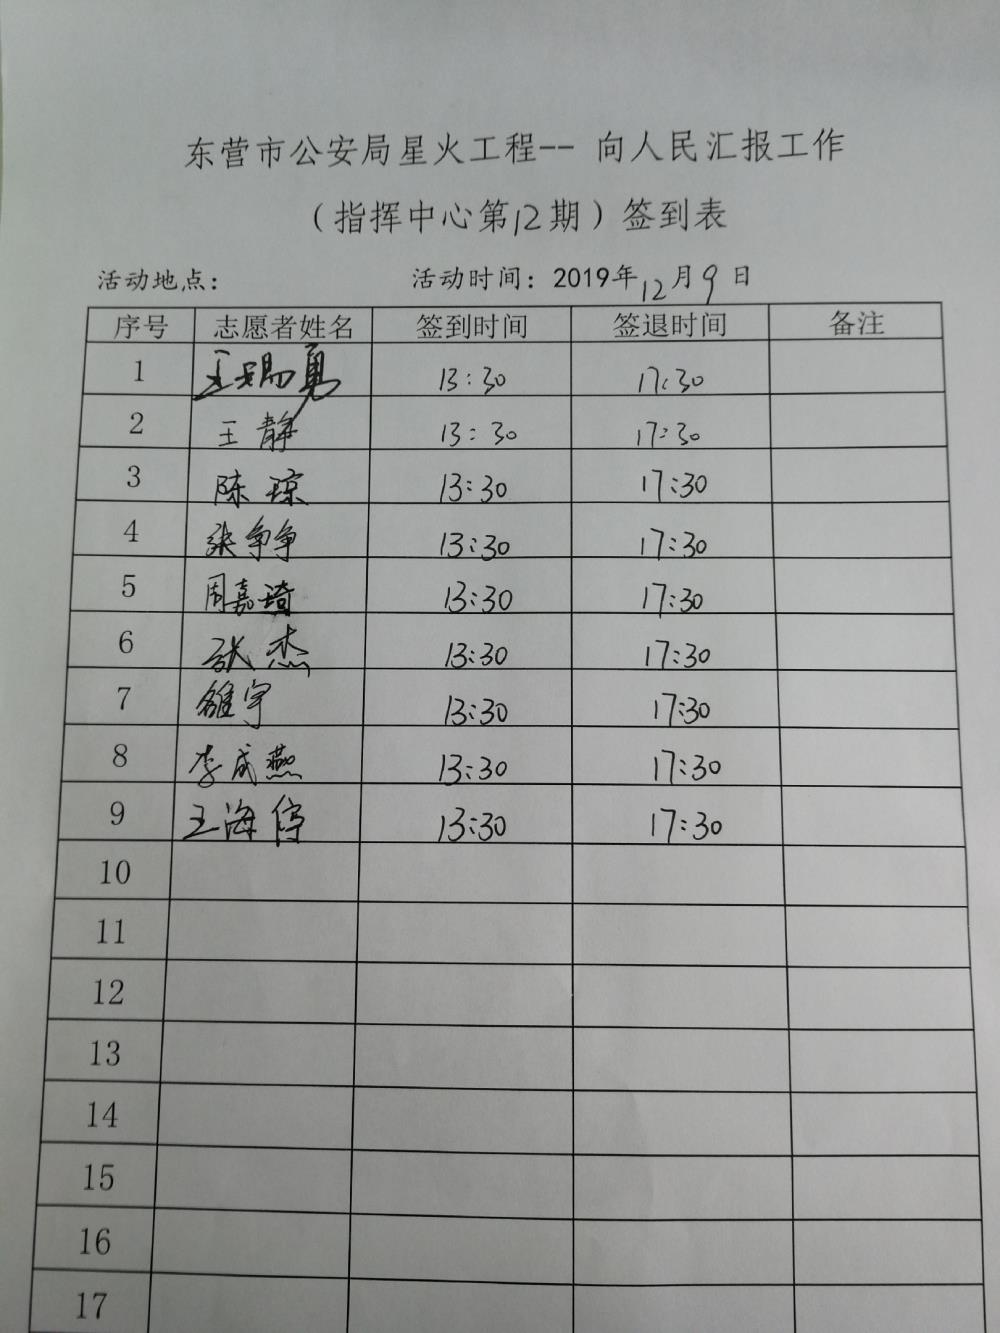 东营市公安局星火工程-- 向人民汇报工作
（指挥中心第12期）签到表
活动地点： 活动时间：2019年12月9日
序号 志愿者姓名 签到时间 签退时间 备注
1 王 勇 13:30 17:30
2 王静 13:30 17:30
3 陈琼 13:30 17:30
4 张争争 13:30 17:30
5 周嘉琦 13:30 17:30
6 张杰 13:30 17:30
7 宇 13:30 17:30
8 李成燕 13:30 17:30
9 王海停 13:30 17:30
10
11
12
13
14
15
16
17